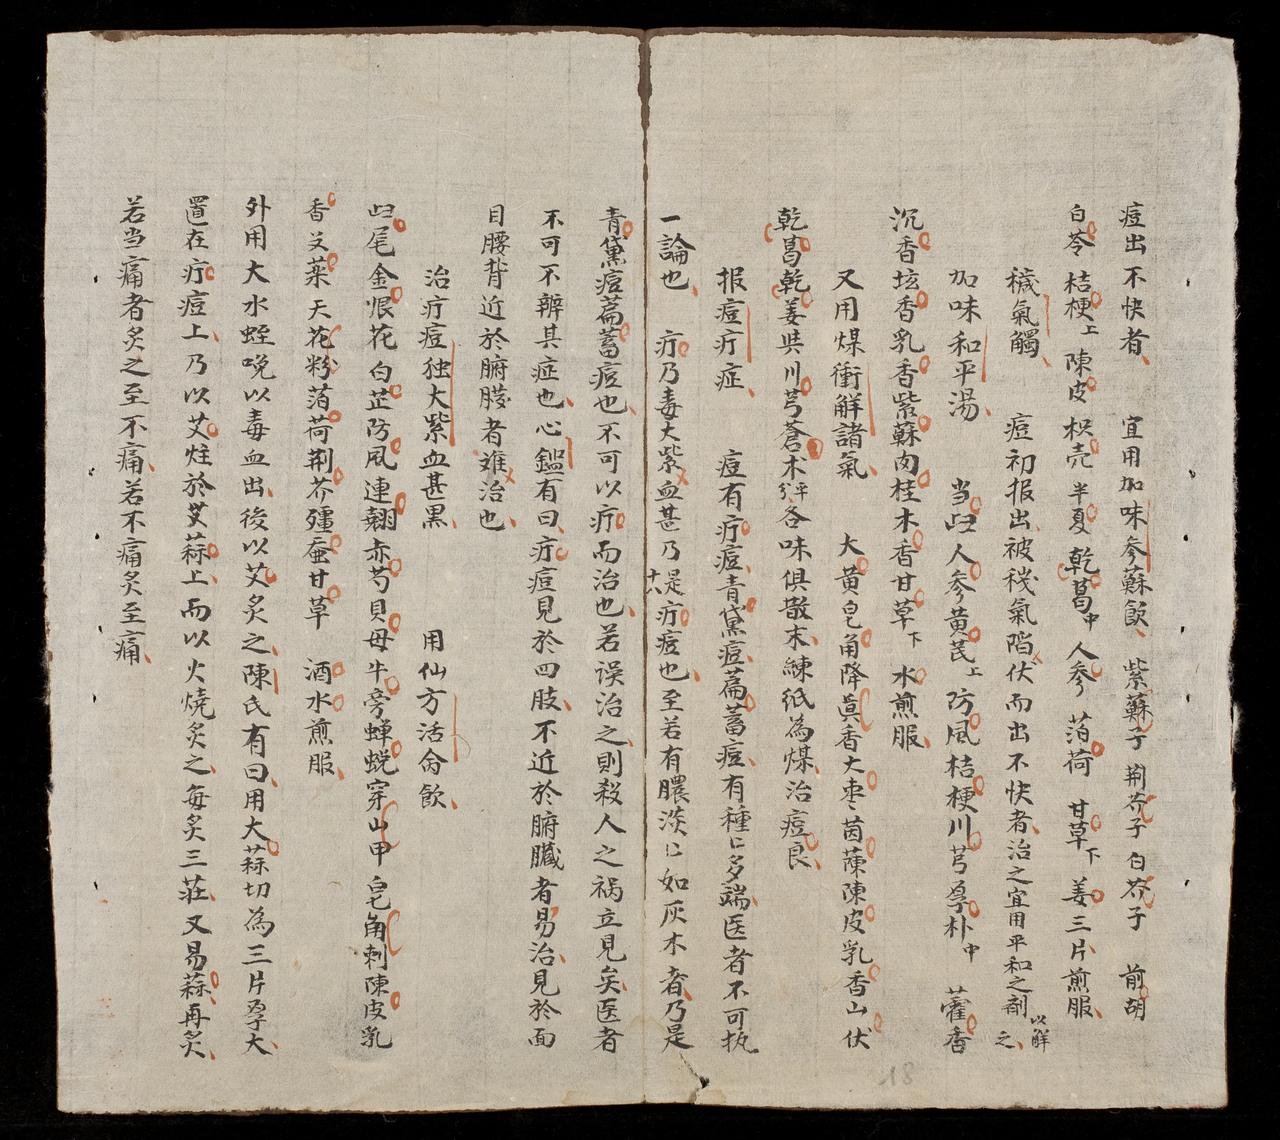 痘出不快者 宜用加味参蘇飲 紫蘇子 荆芥子 白芥子 前胡
白苓 桔梗上 陳皮 枳壳 半夏 乾葛中 人参 萡荷 甘草下 姜三片煎服
穢氣觸 痘初报出被穢氣陷伏而出不快者治之宜用平和之劑以觧之
加味和平湯 当㱕人参黄芪上防風桔梗川芎厚朴中 藿香
沉香坛香乳香紫蘇肉桂木香甘草下 水煎服
又用煤衝觧諸氣 大黄皂角降真香大枣茵蔯陳皮乳香山伏
乾葛乾姜共川芎蒼术等分各味俱散末練紙為煤治痘良
报痘疔症 痘有疔痘青黛痘萹蓄痘有種〻多端医者不可执
一論也 疔乃毒大紫血甚乃是疔痘也至若有膿淡〻如灰木者乃是
十八
青黛痘萹蓄痘也不可以疔而治也若误治之則殺人之祸立見矣医者
不可不辨其症也心鑑有曰疔痘見於四肢不近於腑臟者易治見於面
目腰背近於腑臓者难治也
治疔痘独大紫血甚黒 用仙方活命飲
㱕尾金恨花白芷防風連翹赤芍貝母牛旁蝉蜕穿山甲皂角刺陳皮乳
香没藥天花粉萡荷荆芥殭蚕甘草 酒水煎服
外用大水蛭吮以毒血出後以艾炙之陳氏有曰用大蒜切為三片厚大
置在疔痘上乃以艾炷於艾蒜上而以火燒炙之每炙三荘又易蒜再炙
若当痛者炙之至不痛若不痛炙至痛
18